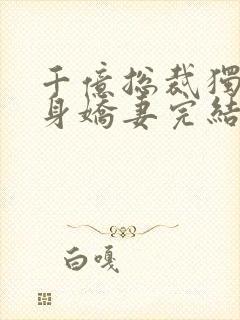 千億总裁獨
身嬌妻完結
白嘎